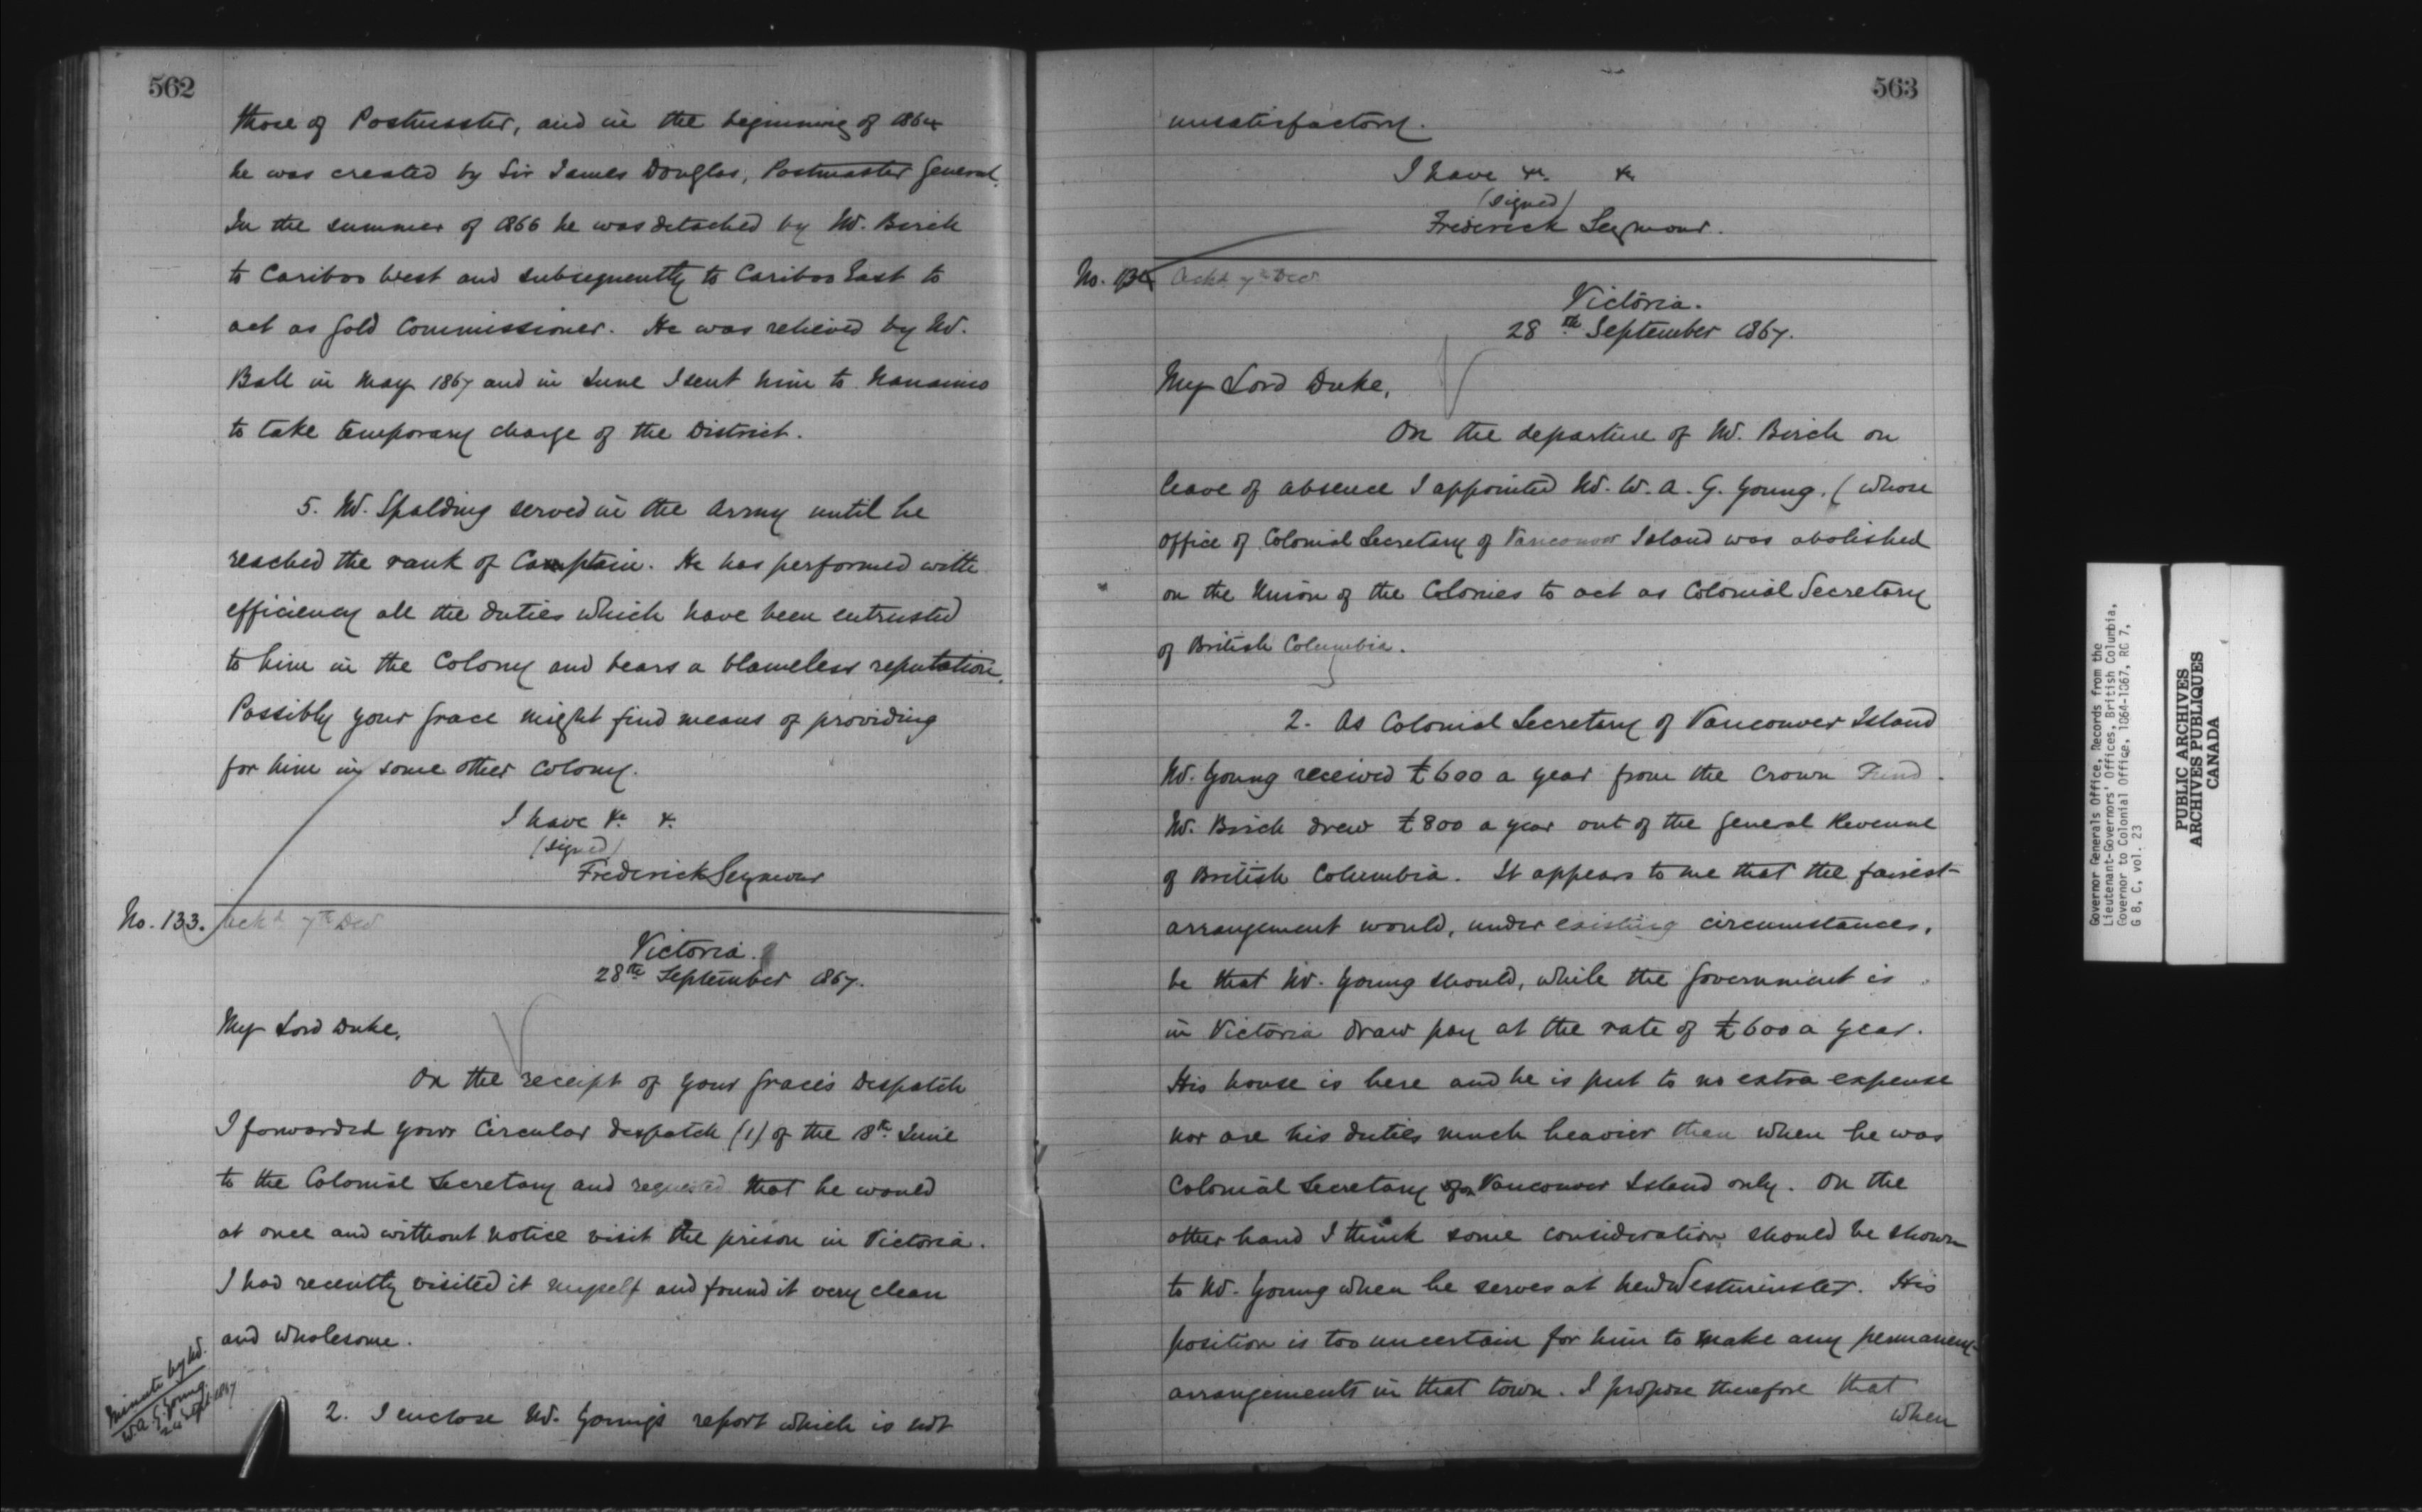 562
those of Postmaster, and in the beginning of 1864
he was created by Sir James Douglas, Postmaster General.
In the summer of 1866 he was detached by Mr. Birch
to Cariboo West and subsequently to Cariboo East to
act as Gold Commissioner. He was relieved by Mr.
Ball in May 1867 and in June I sent him to Nanaimo
to take temporary charge of the District.
5. Mr. Spalding served in the Army until he
reached the rank of Captain. He has performed with
efficiency all the duties which have been entrusted
to him in the Colony and bears a blameless reputation.
Possibly your Grace might find means of providing
for him in some other Colony.
I have &c. &.
(signed)
Frederick Seymour
No. 133. Ackd 7th Dec
Victoria.
28th September 1867.
My Lord Duke,
On the receipt of your Grace's Despatch
I forwarded your Circular despatch (1) of the 18th June
to the Colonial Secretary and requested that he would
at once and without notice visit the prison in Victoria.
I had recently visited it myself and found it very clean
and wholesome.
Minute by Mr.
W.A.G. Young.
24 Sept 1867
2. I enclose Mr. Young's report which is not
563
unsatisfactory.
I have &c. &c
(signed)
Frederick Seymour.
No. 134 Ackd 7th Dec
Victoria.
28th September 1867.
My Lord Duke,
On the departure of Mr. Birch on
leave of absence I appointed Mr. W. A. G. Young, (whose
office of Colonial Secretary of Vancouver Island was abolished
on the Union of the Colonies to act as Colonial Secretary
of British Columbia.
2. As Colonial Secretary of Vancouver Island
Mr. Young received £600 a year from the Crown Fund.
Mr. Birch drew £800 a year out of the General Revenue
of British Columbia. It appears to me that the fairest
arrangement would, under existing circumstances,
be that Mr. Young should, while the Government is
in Victoria draw pay at the rate of £600 a year.
His house is here and he is put to no extra expense
nor are his duties much heavier than when he was
Colonial Secretary of Vancouver Island only. On the
other hand I think some consideration should be shown
to Mr. Young when he serves at New Westminster. His
position is too uncertain for him to make any permanent
arrangements in that town. I propose therefore that
when
Governor Generals Office, Records from the
Lieutenant-Governors' Offices, British Columbia,
Governor to Colonial Office, 1864-1867, RG 7,
G 8, C, vol. 23
PUBLIC ARCHIVES
ARCHIVES PUBLIQUES
CANADA